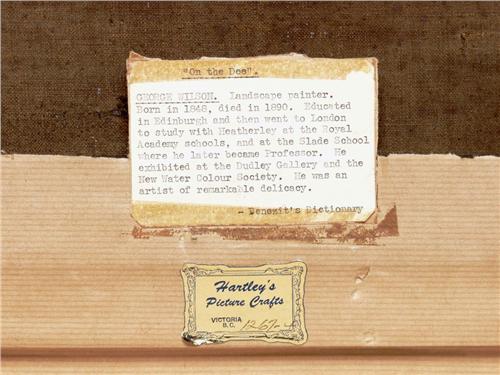 "On the Dee".
GEORGE WILSON. Landscape painter.
Born in 1848, died in 1890. Educated
in Edinburgh and then went to London
to study with Heatherley at the Royal
Academy schools, and at the Slade School
where he later became Professor. He
exhibited at the Dudley Gallery and the
New Water Colour Society. He was an
artist of remarkable delicacy.
- Benezit's Dictionary
Hartley's
Picture Crafts
VICTORIA
B.C.